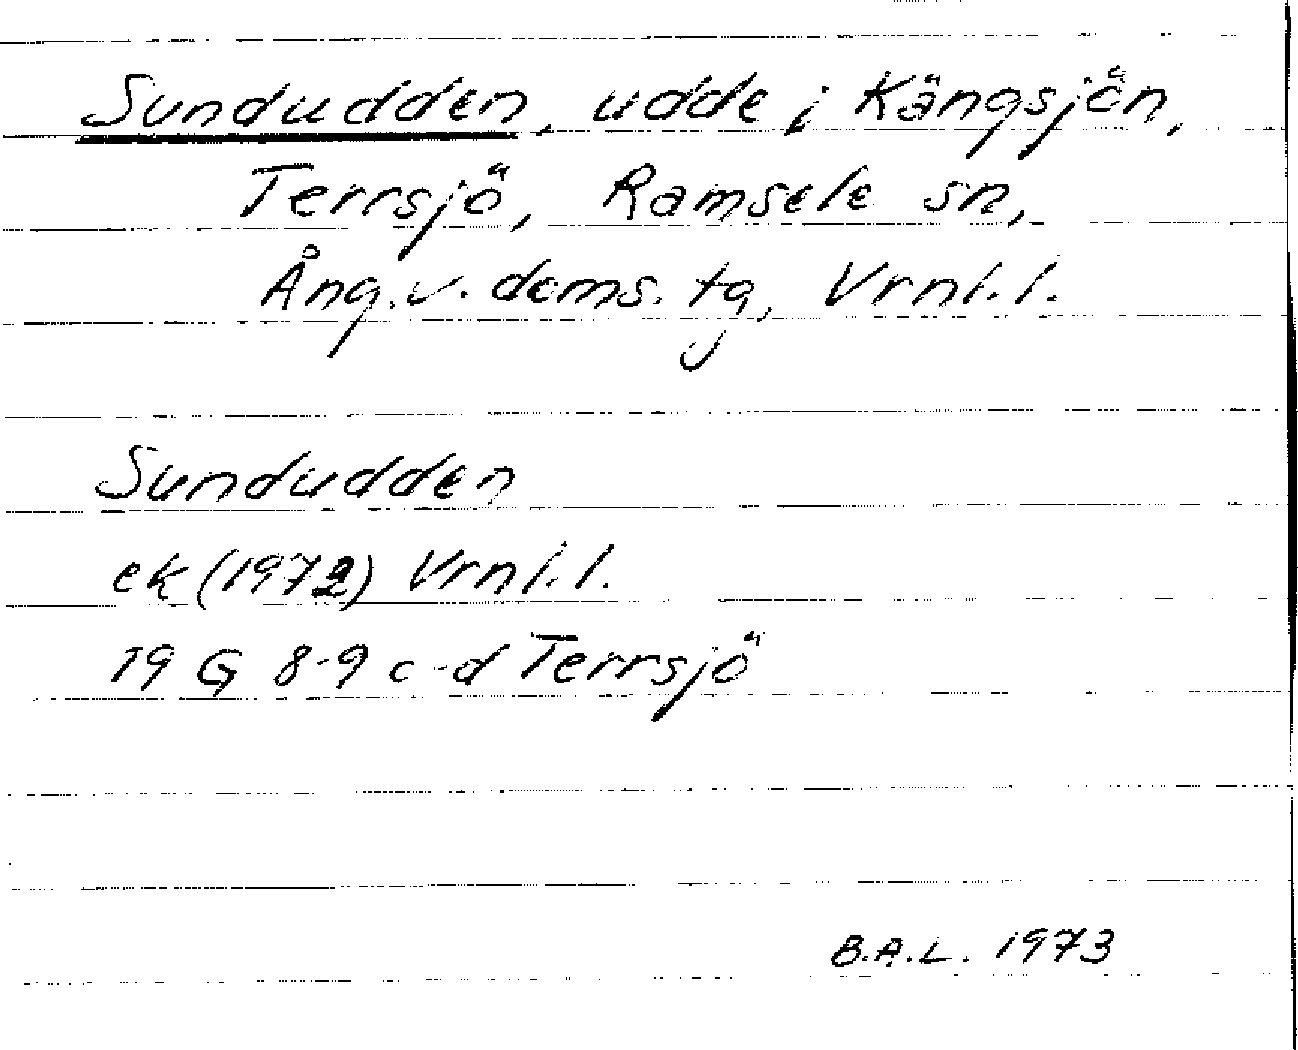 Sundudden, udde i Kängsjön,
Terrsjö, Ramsele sn,
Ång.v. doms. tg, Vrnl.l.
Sundudden
ek (1972) Vrnl.l.
19 G 8-9 c-d Terrsjö
B.A.L. 1973